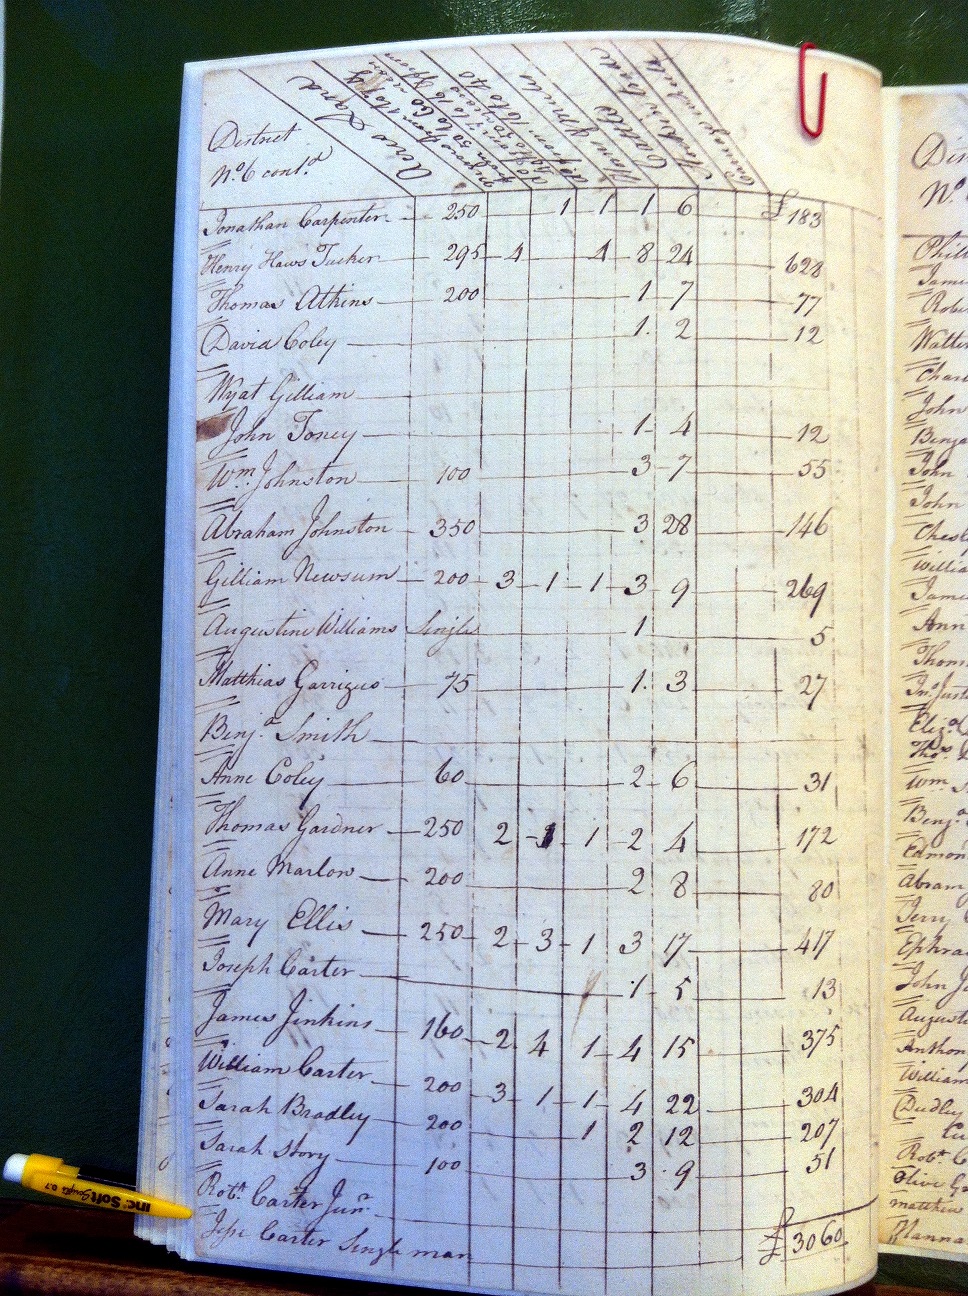 District
No. 6 contd
Acres Land
Jonathan Carpenter 250 1 1 1 6 £ 183
Henry Haws Tucker 295 4 4 8 24 628
Thomas Atkins 200 1 7 77
David Coley 1 2 12
Wyat Gilliam
John Toney 1 4 12
Wm. Johnston 100 3 7 55
Abraham Johnston 350 3 28 146
Gilliam Newsum 200 3 1 1 3 9 269
Augustine Williams Single 1 5
Matthias Garrigus 75 1 3 27
Benja. Smith
Anne Coley 60 2 6 31
Thomas Gardner 250 2 1 2 4 172
Anne Marlow 200 2 8 80
Mary Ellis 250 2 3 1 3 17 417
Joseph Carter 1 5 13
James Jinkins 160 2 4 1 4 15 375
William Carter 200 3 1 1 4 22 304
Sarah Bradley 200 1 2 12 207
Sarah Story 100 3 9 51
Robt. Carter Junr.
Jesse Carter Single man
£ 3060
No.
Phil
James
Robe
Walter
Charl
John
Benja
John
John
Chesl
William
Jame
Ann
Thoma
Eliza
Thos.
Wm.
Benja
Edmon
Abram
Terry
Ephra
John
August
Anthon
William
Dudley
Robt. C
Olive G
matthew
Hanna
inc Soft 0.7